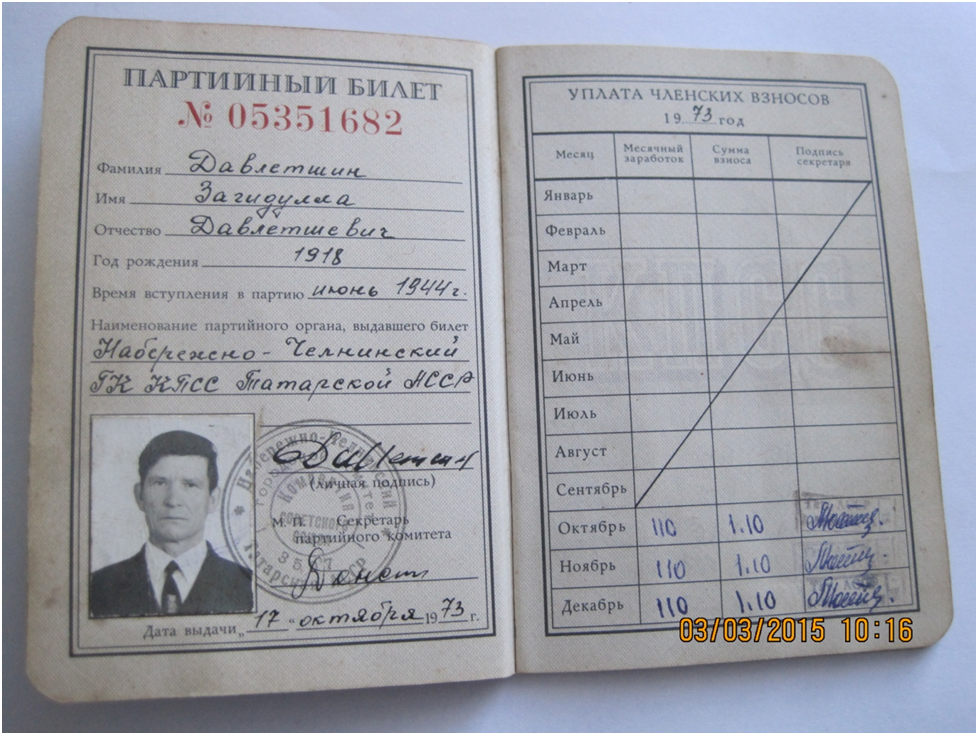 ПАРТИЙНЫЙ БИЛЕТ
№ 05351682
Фамилия Давлетшин
Имя Загидулла
Отчество Давлетшевич
Год рождения 1918
Время вступления в партию июнь 1944 г.
Наименование партийного органа, выдавшего билет
Набережно-Челнинский
ГК КПСС Татарской АССР
(личная подпись)
М. П. Секретарь
партийного комитета
Дата выдачи „17" октября 1973 г.
УПЛАТА ЧЛЕНСКИХ ВЗНОСОВ
1973 год
Месяц Месячный заработок Сумма взноса Подпись секретаря
Январь
Февраль
Март
Апрель
Май
Июнь
Июль
Август
Сентябрь
Октябрь 110 1.10
Ноябрь 110 1.10
Декабрь 110 1.10
03/03/2015 10:16